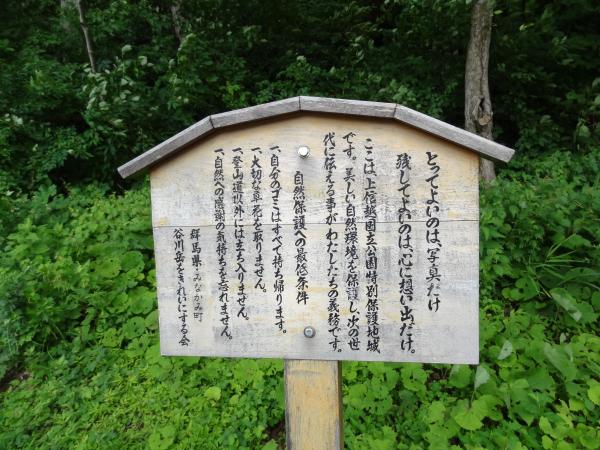 とってよいのは、写真だけ
残してよいのは、心に想い出だけ。
ここは、上信越国立公園特別保護地域
です。美しい自然環境を保護し、次の世
代に伝える事が、わたしたちの義務です。
自然保護への最低条件
一、自分のゴミはすべて持ち帰ります。
一、大切な草花を取りません。
一、登山道以外には立ち入りません。
一、自然への感謝の気持ちを忘れません。
群馬県・みなかみ町
谷川岳をきれいにする会